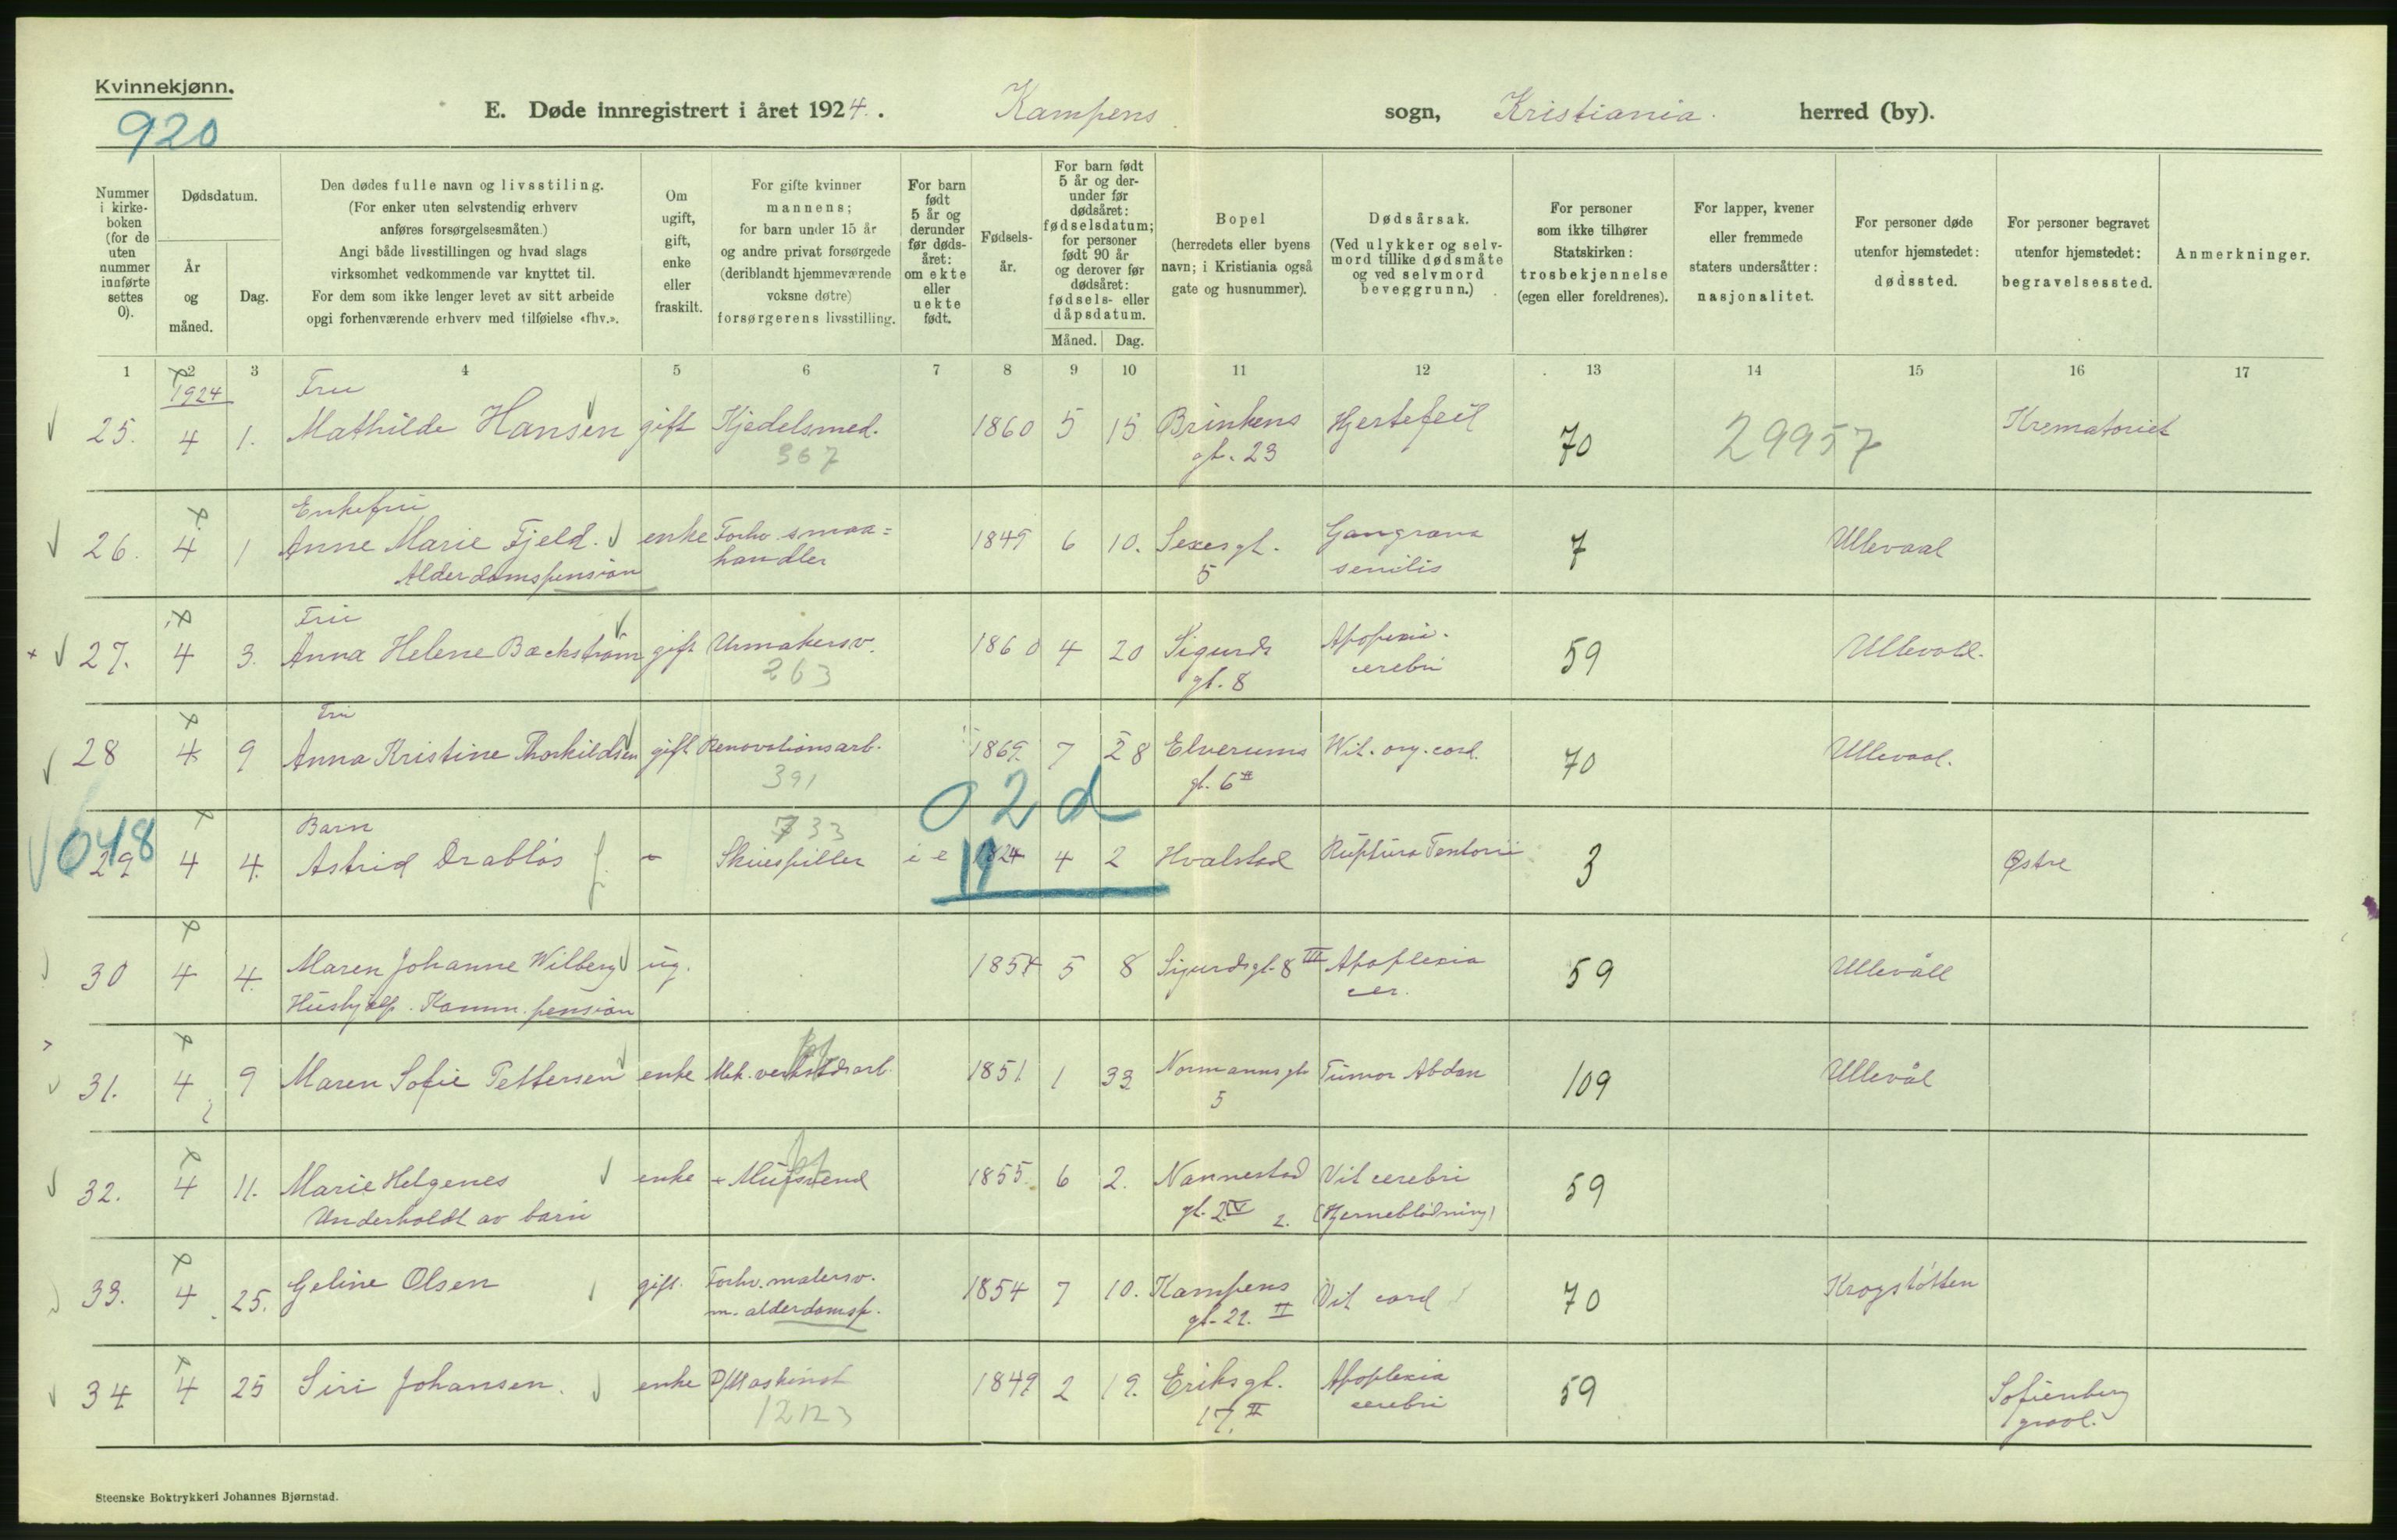 Kvinnekjønn.
920
E. Døde innregistrert i året 1924. Kampens sogn, Kristiania. herred (by).
Nummer i kirkeboken (for de uten nummer innførte settes 0).
Dødsdatum.
År og måned.
Dag.
Den dødes fulle navn og livsstiling.
(For enker uten selvstendig erhverv
anføres forsørgelsesmåten.)
Angi både livsstillingen og hvad slags
virksomhet vedkommende var knyttet til.
For dem som ikke lenger levet av sitt arbeide
opgi forhenværende erhverv med tilføielse «fhv.».
Om ugift, gift, enke eller fraskilt.
For gifte kvinner
mannens;
for barn under 15 år
og andre privat forsørgede
(deriblandt hjemmeværende
voksne døtre)
forsørgerens livsstilling.
For barn født 5 år og derunder før dødsåret: om ekte eller uekte født.
Fødselsår.
For barn født 5 år og derunder før dødsåret: fødselsdatum; for personer født 90 år og derover før dødsåret: fødsels- eller dåpsdatum.
Måned. Dag.
Bopel
(herredets eller byens
navn; i Kristiania også
gate og husnummer).
Dødsårsak.
(Ved ulykker og selvmord tillike dødsmåte
og ved selvmord
beveggrunn.)
For personer
som ikke tilhører
Statskirken:
trosbekjennelse
(egen eller foreldrenes).
For lapper, kvener
eller fremmede
staters undersåtter:
nasjonalitet.
For personer døde
utenfor hjemstedet:
dødssted.
For personer begravet
utenfor hjemstedet:
begravelsessted.
Anmerkninger.
1 2 3 4 5 6 7 8 9 10 11 12 13 14 15 16 17
1924 Fru
25. 4 1. Mathilde Hansen gift Kjedelsmed. 1860 5 15 Brinkens Hjertefeil 70 29957 Krematoriet
367 gt. 23
Enkefru
26. 4 1 Anne Marie Fjeld. enke Forhv. smaa= 1849 6 10. Sexesgt. Gangræna 7 Ullevaal
Alderdomspension handler 5 senilis
Fru
27. 4 3. Anna Helene Backstrøm gift Urmakersv. 1860 4 20 Sigurds Apopexi. 59 Ullevold.
263 gt. 8 cerebri
Fru
28 4 9 Anna Kristine Thorkildsen gift Renovationsarb. 1869. 7 28 Elverums Vit. org. cord. 70 Ullevaal.
391 gt. 6 II
02d
Barn 733
048
29 4 4. Astrid Drabløs - Skuespiller e 1924 4 2 Hvalstad Ruptura Tentorii 3 Østre
30 4 4. Maren Johanne Wilberg ug. 1854 5 8 Sigurdsgt. 8 III Apoplexia 59 Ullevåll
Hushjelp. Komm. pension cer.
31. 4 9 Maren Sofie Pettersen enke Mek. verkstdsarb. 1851 1 33 Normannsgt. Tumor Abdom 109 Ullevål
5
32. 4 11. Marie Helgenes enke Mursvend 1855. 6 2. Nannestad Vit cerebri 59
Underholdt av barn gt. 2 IV (Hjerneblødning)
33. 4 25. Geline Olsen gift. Forhv. malersv. 1854 7 10. Kampens Vit cord 70 Krogstøtten
m. alderdomsp. gt. 22. II
34 4 25 Siri Johansen. enke D/Maskinist 1849 2 19. Eriksgt. Apoplexia 59 Sofienberg
17. II cerebri gravl.
Steenske Boktrykkeri Johannes Bjørnstad.